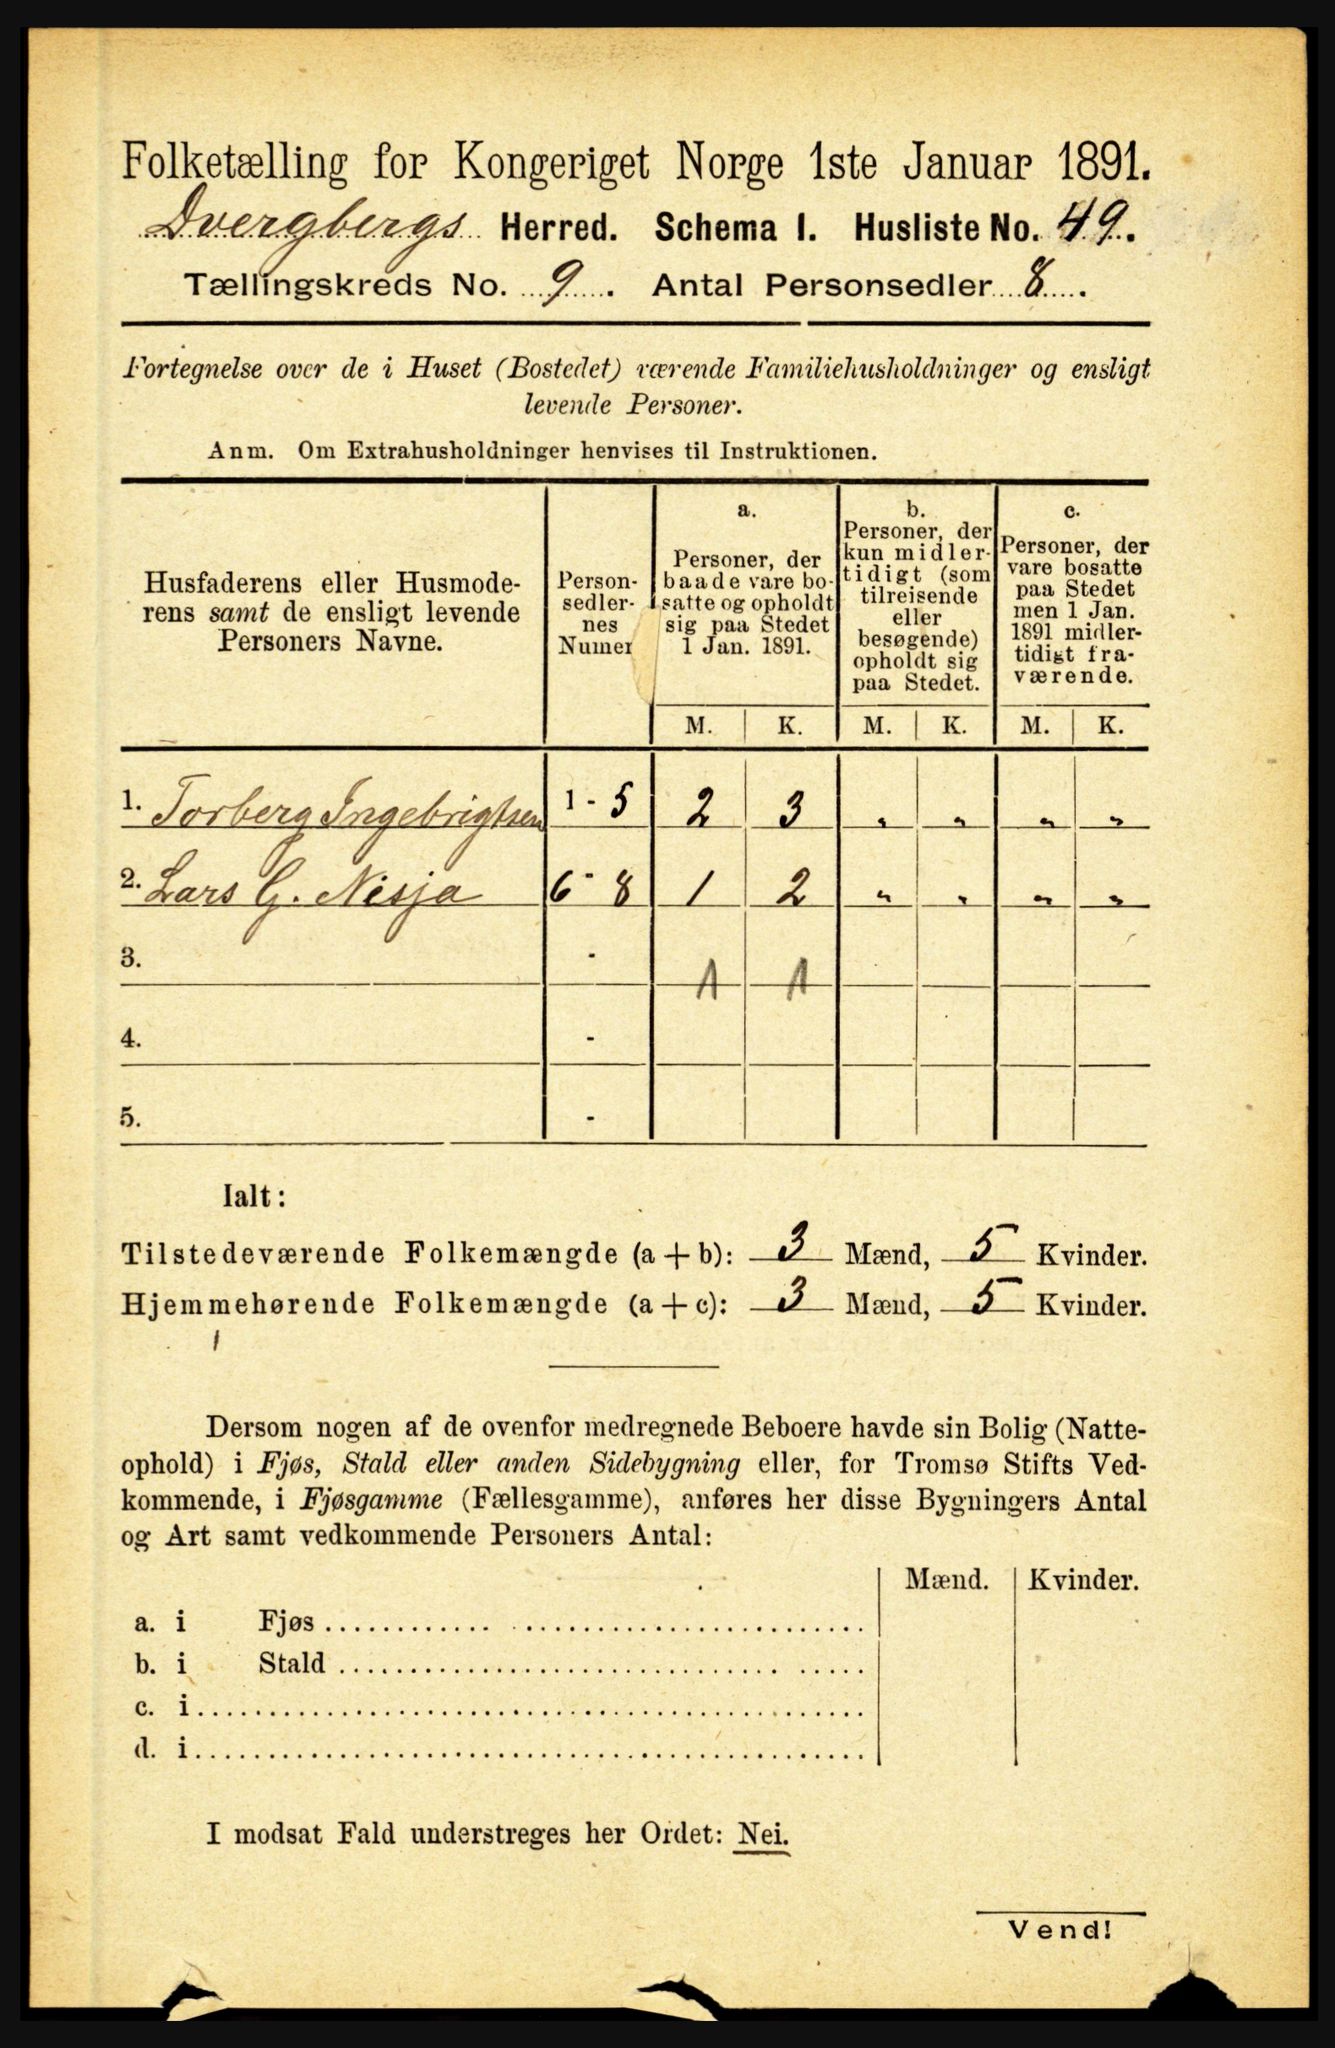 Folketælling for Kongeriget Norge 1ste Januar 1891.
Dvergbergs Herred. Schema I. Husliste No. 49.
Tællingskreds No. 9. Antal Personsedler 8.
Fortegnelse over de i Huset (Bostedet) værende Familiehusholdninger og ensligt
levende Personer.
Anm. Om Extrahusholdninger henvises til Instruktionen.
Husfaderens eller Husmode-
rens samt de ensligt levende
Personers Navne.
Person-
sedler-
nes
Numer
a.
Personer, der
baade vare bo-
satte og opholdt
sig paa Stedet
1 Jan. 1891.
b.
Personer, der
kun midler-
tidigt (som
tilreisende
eller
besøgende)
opholdt sig
paa Stedet.
c.
Personer, der
vare bosatte
paa Stedet
men 1 Jan.
1891 midler-
tidigt fra-
værende.
M. K. M. K. M. K.
1. Torberg Ingebrigtsen 1 - 5 2 3 " " " "
2. Lars G. Nisja 6 - 8 1 2 " " " "
3. - 1 1
4. -
5. -
Ialt:
Tilstedeværende Folkemængde (a + b): 3 Mænd, 5 Kvinder.
Hjemmehørende Folkemængde (a + c): 3 Mænd, 5 Kvinder.
Dersom nogen af de ovenfor medregnede Beboere havde sin Bolig (Natte-
ophold) i Fjøs, Stald eller anden Sidebygning eller, for Tromsø Stifts Ved-
kommende, i Fjøsgamme (Fællesgamme), anføres her disse Bygningers Antal
og Art samt vedkommende Personers Antal:
Mænd. Kvinder.
a. i Fjøs
b. i Stald
c. i
d. i
I modsat Fald understreges her Ordet: Nei.
Vend!